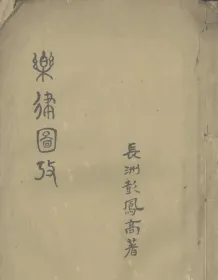 樂律圖攷
長洲彭鳳高著